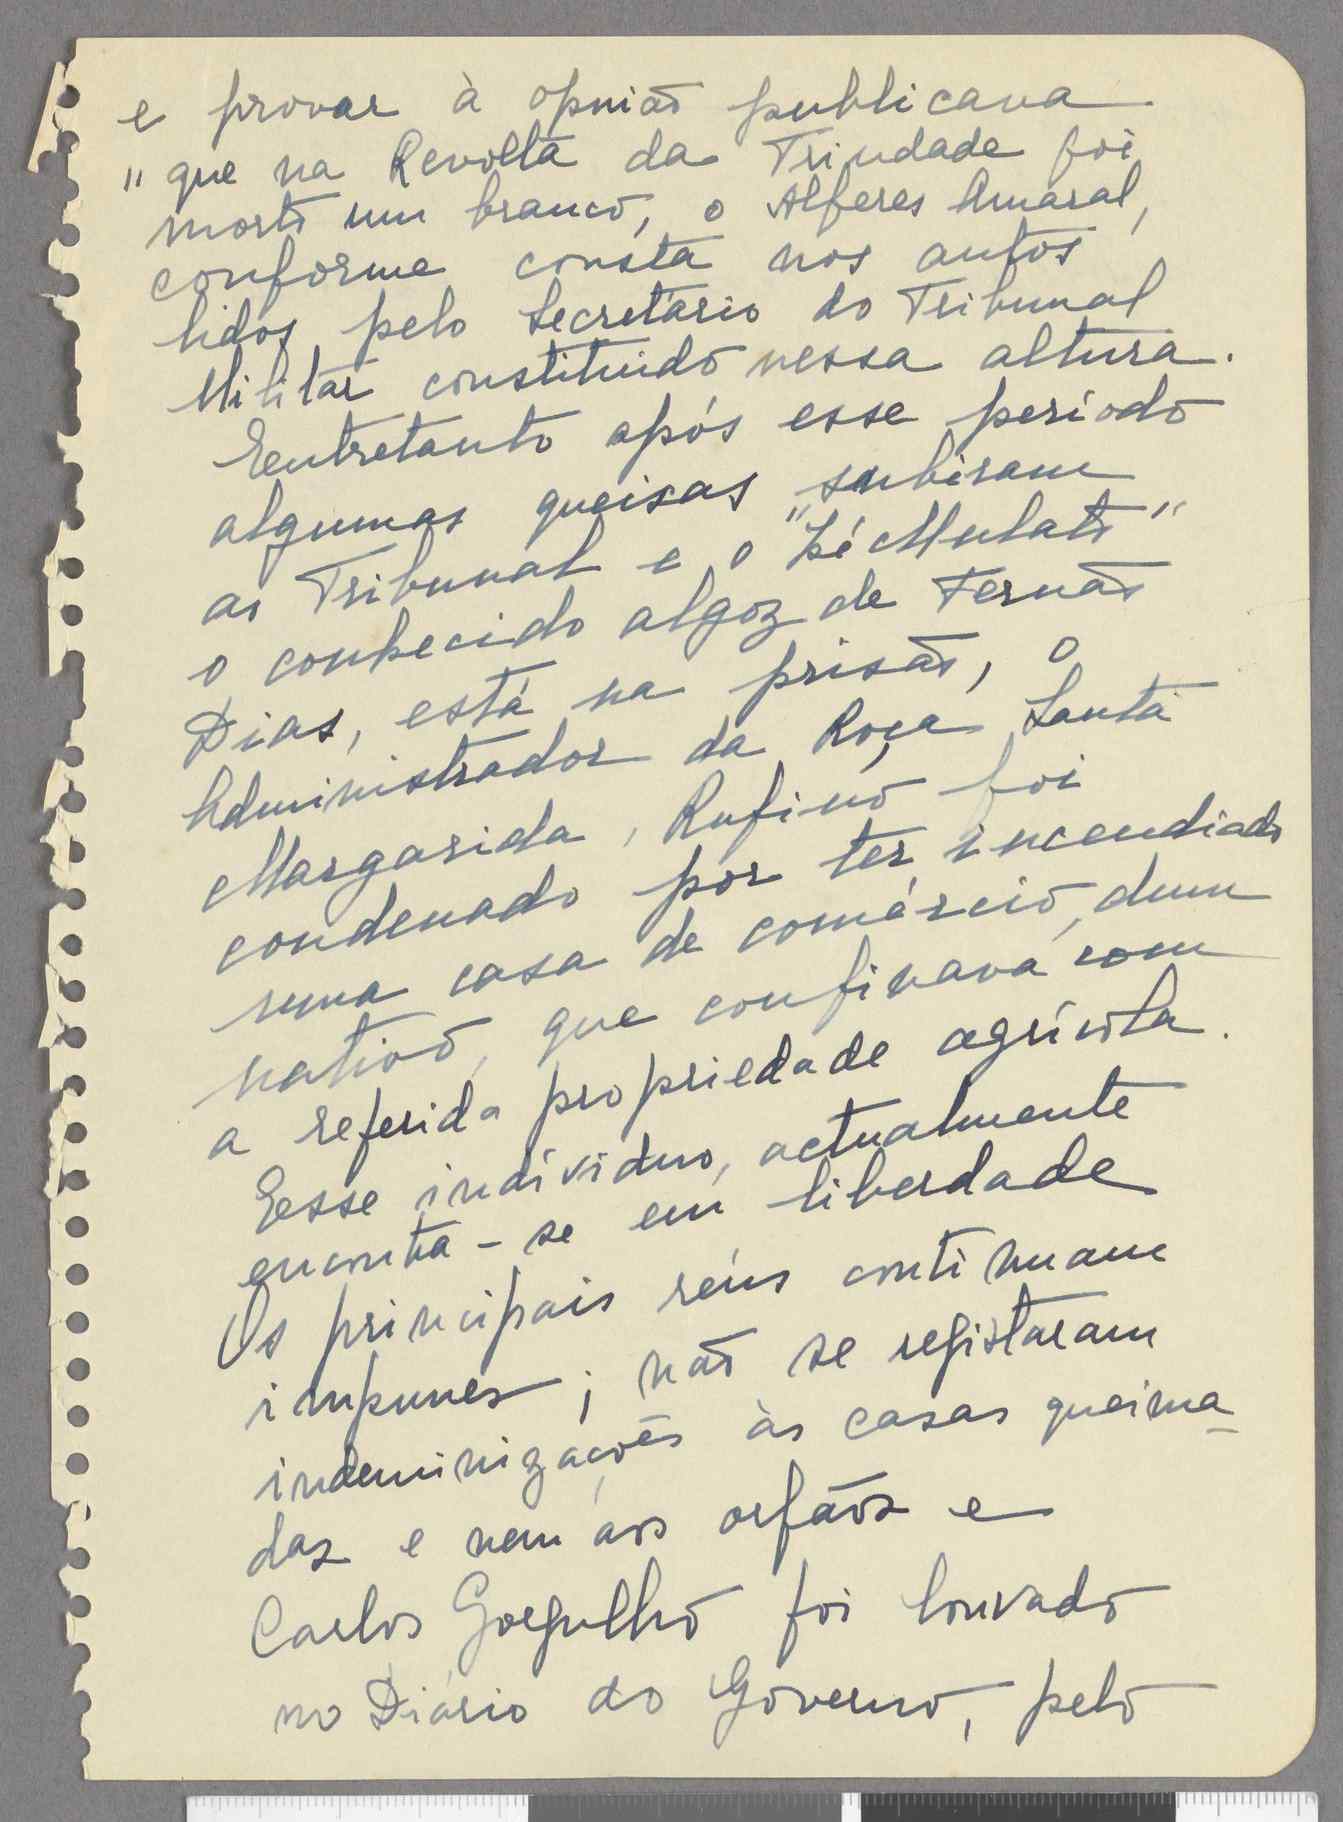 e provar à opniaõ publicana
" que na Revolta da Trindade foi
morto um branco, o Alferes Amaral,
conforme consta nos autos
lidos pelo Secretário do Tribunal
Militar constituido nessa altura.
Eentretanto após esse período
algumas queixas subiram
ao Tribunal e o "Zé Mulato"
o conhecido algoz de Fernaõ
Dias, está na prisaõ, o
Administrador da Roça Santa
Margarida, Rufino foi
condenado por ter incendiado
uma casa de comércio, dum
nativo, que confinava com
a referida propriedade agrícola.
Eesse indíviduo, actualmente
encontra-se em liberdade
Os principais réus continuam
impunes; naõ se registaram
indeminizações às casas queima-
das e nem aos orfaõs e
Carlos Gorgulho foi louvado
no Diário do Governo, pelo